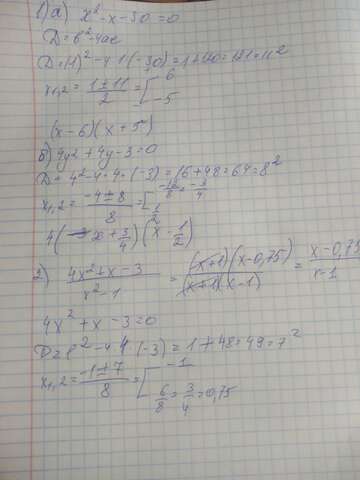 1) а) x² - x - 30 = 0
D = b² - 4ac
D = (-1)² - 4·1·(-30) = 1 + 120 = 121 = 11²
x₁,₂ = (1 ± 11)/2 = [ 6
-5
(x - 6)(x + 5)
б) 4y² + 4y - 3 = 0
D = 4² - 4·4·(-3) = 16 + 48 = 64 = 8²
x₁,₂ = (-4 ± 8)/8 = [ -12/8 = -3/4
1/2
4(x + 3/4)(x - 1/2)
2) (4x² + x - 3)/(x² - 1) = ((x+1)(x-0,75))/((x+1)(x-1)) = (x-0,75)/(x-1)
4x² + x - 3 = 0
D = 1² - 4·4·(-3) = 1 + 48 = 49 = 7²
x₁,₂ = (-1 ± 7)/8 = [ -1
6/8 = 3/4 = 0,75